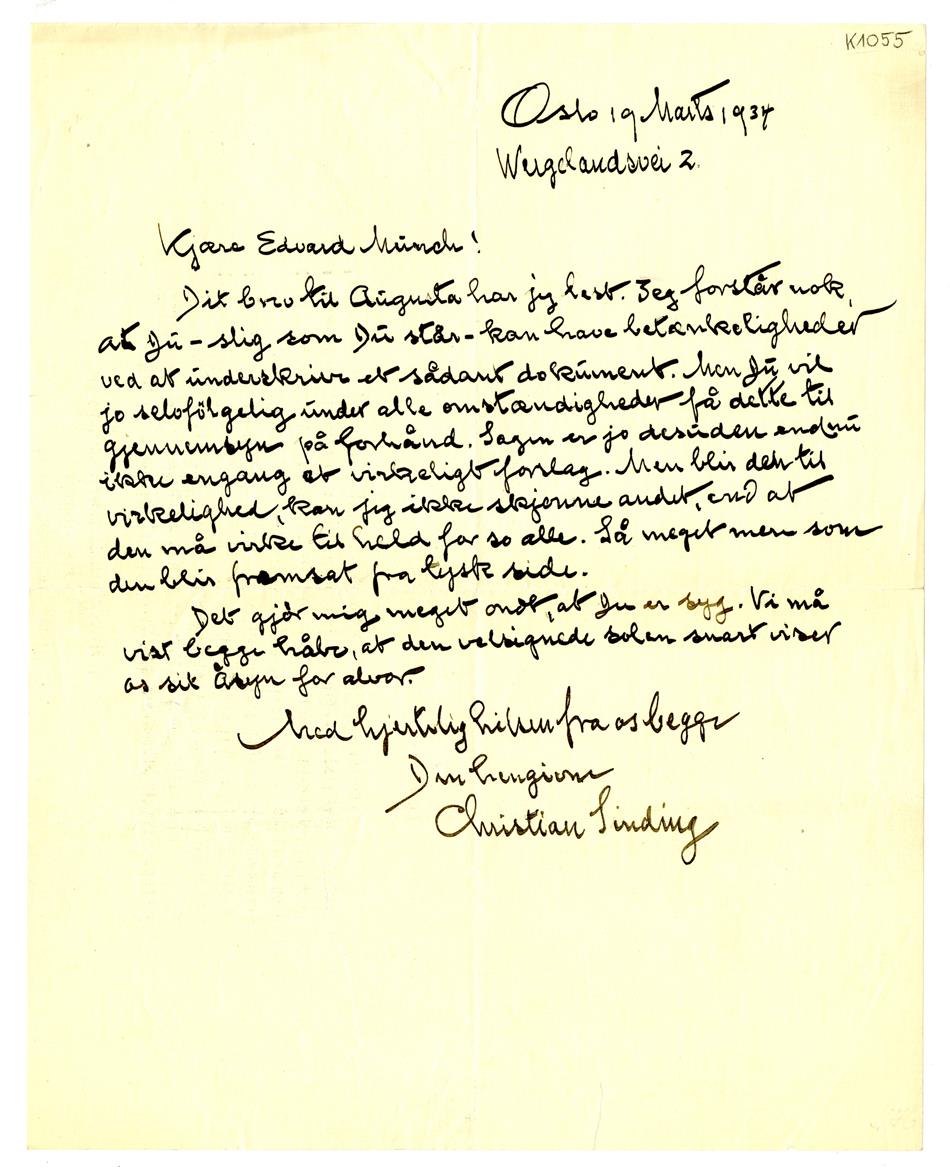 K1055
Oslo 19 Marts 1934
Wergelandsvei 2.
Kjære Edvard Munch!
Dit brev til Augusta har jeg læst. Jeg forstår nok,
at Du – slig som Du står – kan have betænkeligheder
ved at underskrive et sådant dokument. Men Du vil
jo selvfölgelig under alle omstændigheder få dette til
gjennemsyn på forhånd. Sagen er jo desuden endnu
ikke engang et virkeligt forslag. Men blir det til
virkelighed, kan jeg ikke skjønne andet, end at
den må virke til held for os alle. Så meget mere som
den blir fremsat fra tysk side.
Det gjör mig meget ondt, at Du er syg. Vi må
vist begge håbe, at den velsignede solen snart viser
os sit Åsyn for alvor.
Med hjertelig hilsen fra os begge
Din hengivne
Christian Sinding